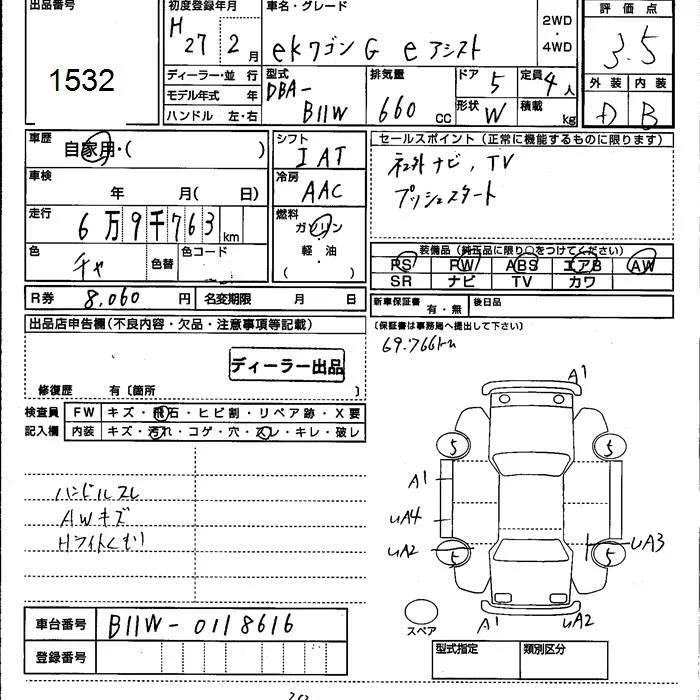 出品番号
1532
初度登録年月
H 27 2 月
車名・グレード
ekワゴン G e アシスト
2WD
・
4WD
評価点
3.5
外装 内装
D B
ディーラー・並 行
モデル年式 年
ハンドル 左・右
型式
DBA-
B11W
排気量
660 cc
ドア 5
形状 W
定員 4 人
積載 kg
車歴
自家用・( )
車検
年 月( 日)
走行
6万9千763 km
色 チャ 色替 色コード
シフト
IAT
冷房
AAC
燃料
ガソリン
軽・油
( )
セールスポイント(正常に機能するものに限ります)
社外ナビ, TV
プッシュスタート
装備品(純正品に限り○をつけてください)
PS PW ABS エアB AW
SR ナビ TV カワ
R券 8,060 円 名変期限 月 日
新車保証書 有・無 後日品
(保証書は事務局へ提出して下さい)
69.766km
出品店申告欄(不良内容・欠品・注意事項等記載)
ディーラー出品
修復歴 有〔箇所 〕
検査員
記入欄
FW キズ・飛石・ヒビ割・リペア跡・X要
内装 キズ・汚れ・コゲ・穴・スレ・キレ・破レ
ハンドルスレ
AWキズ
Hライトくもり
A1
5 5
A1
uA4
uA2 5 5 uA3
スペア
A1 uA2
車台番号 B11W-0118616
登録番号
型式指定 類別区分